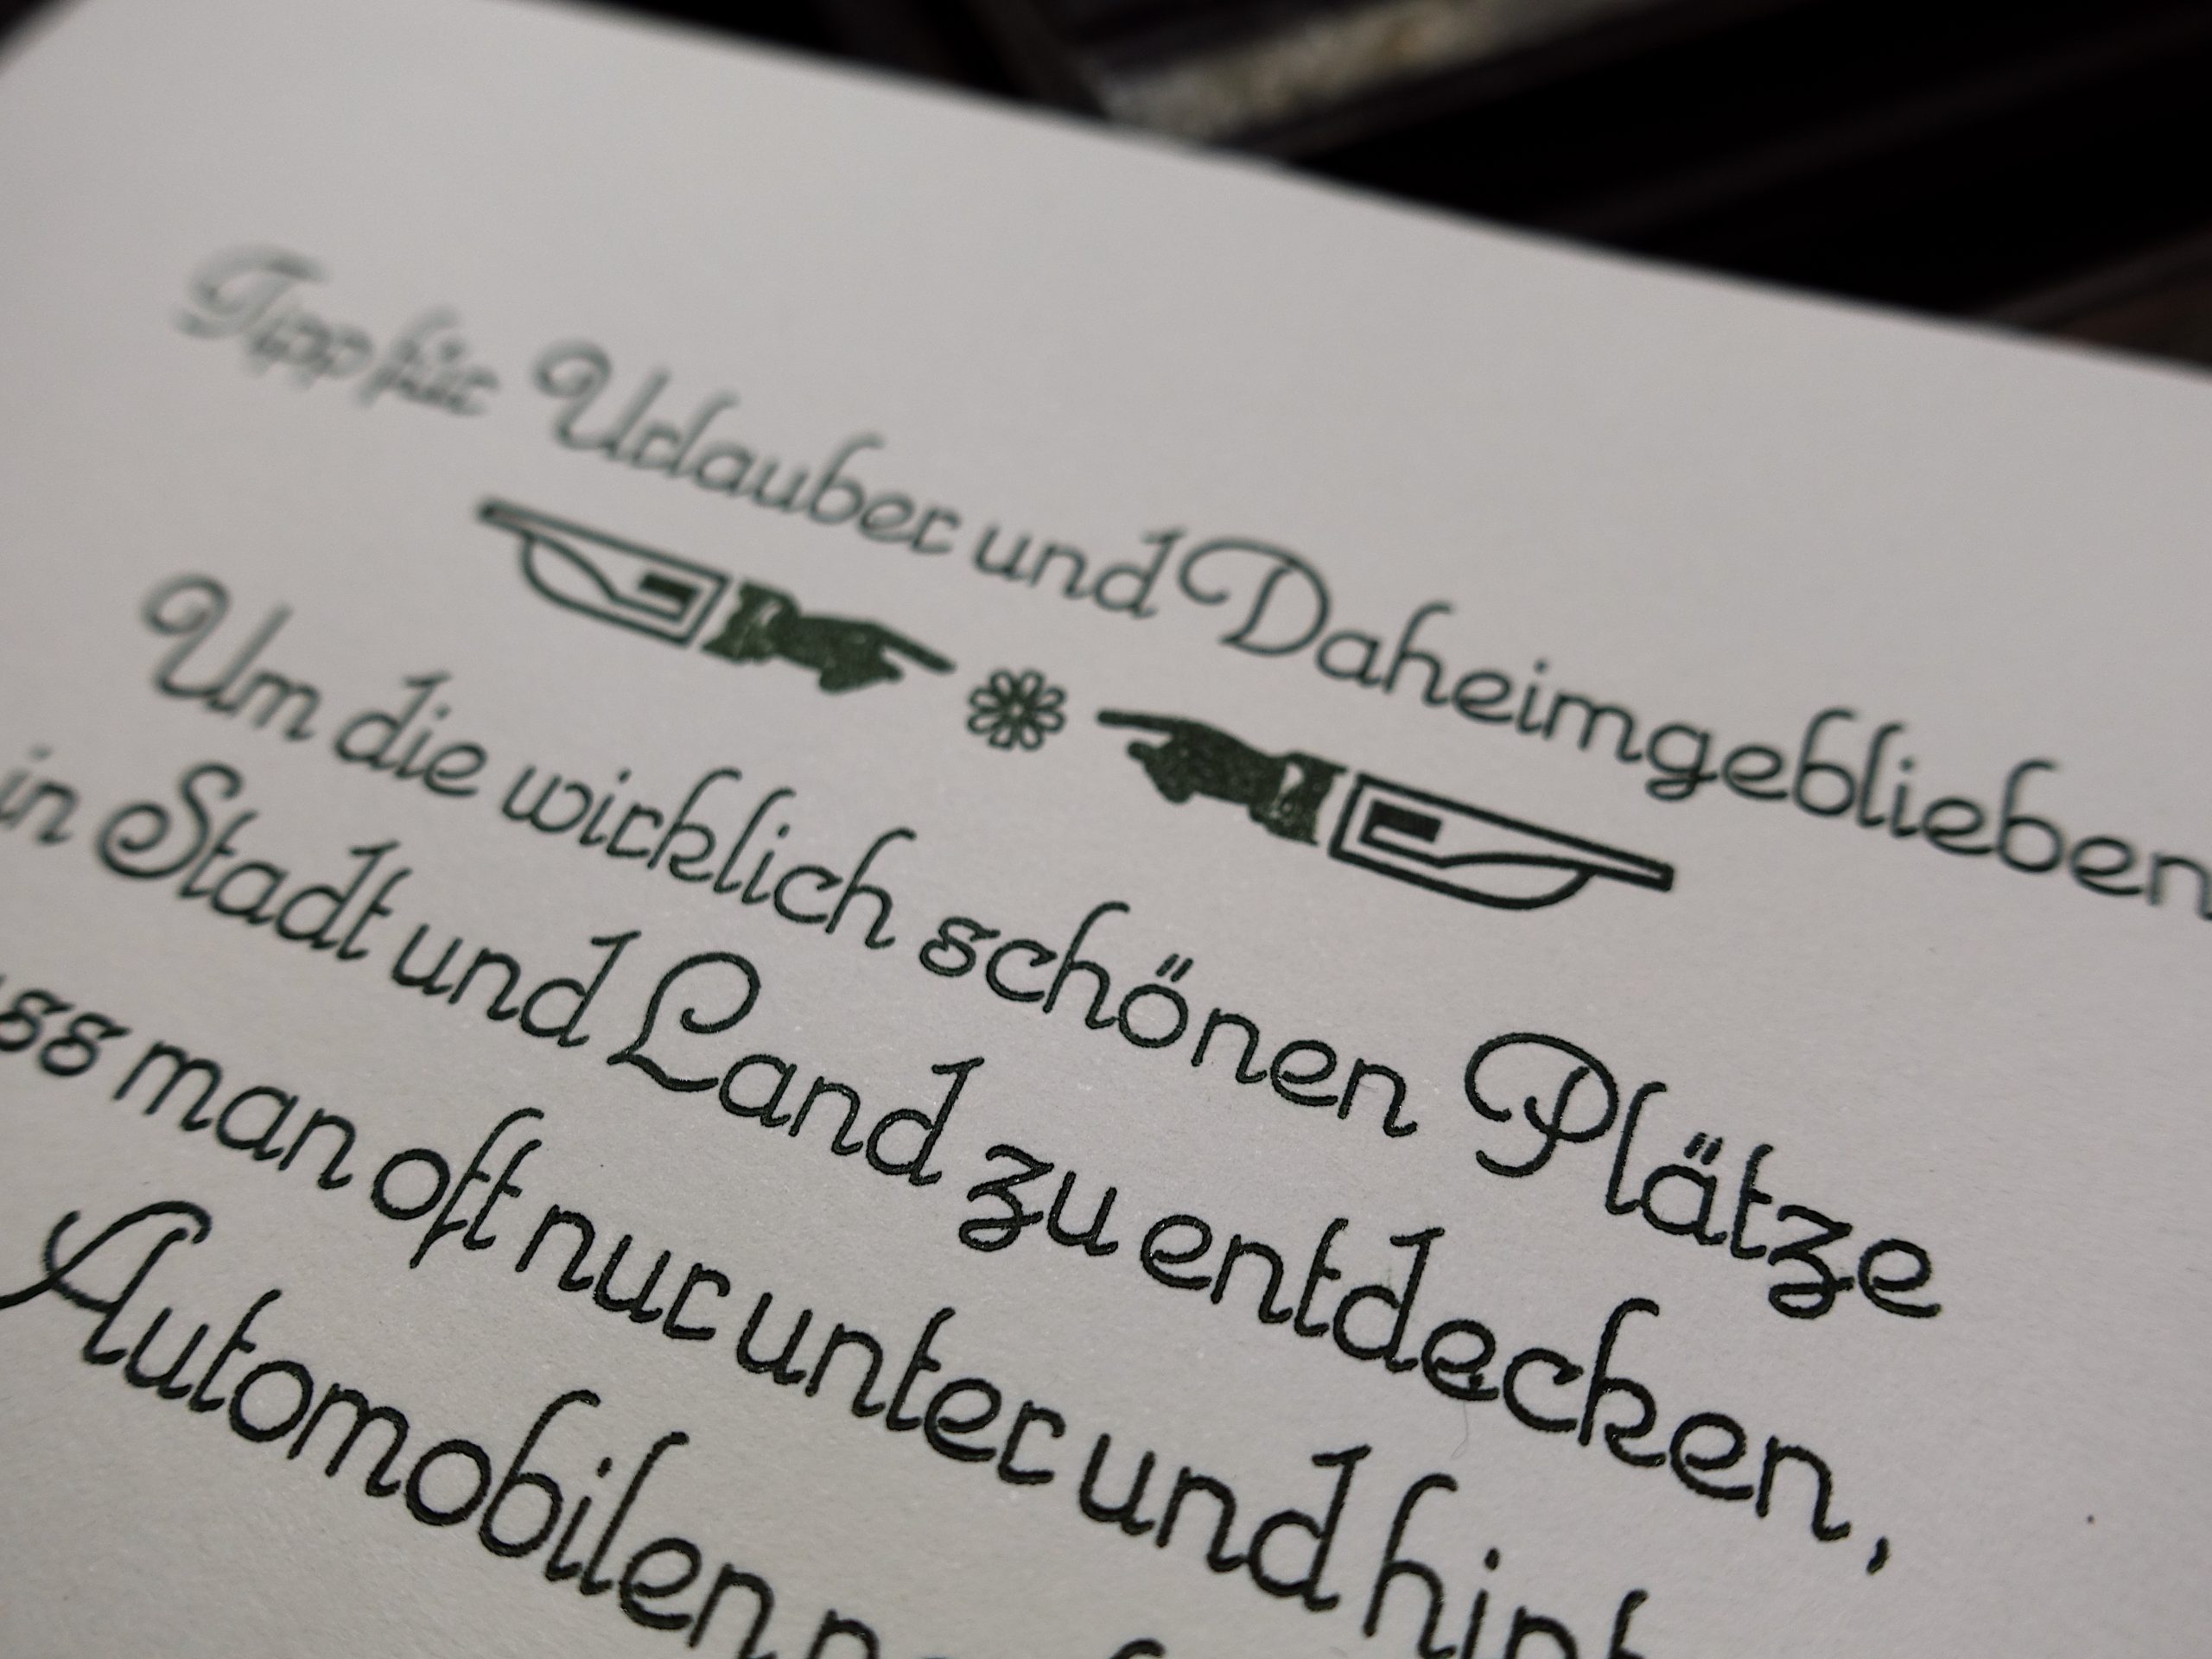 Tipp für Urlauber und Daheimgeblieben
Um die wirklich schönen Plätze
in Stadt und Land zu entdecken,
ss man oft nur unter und hint
Automobilen